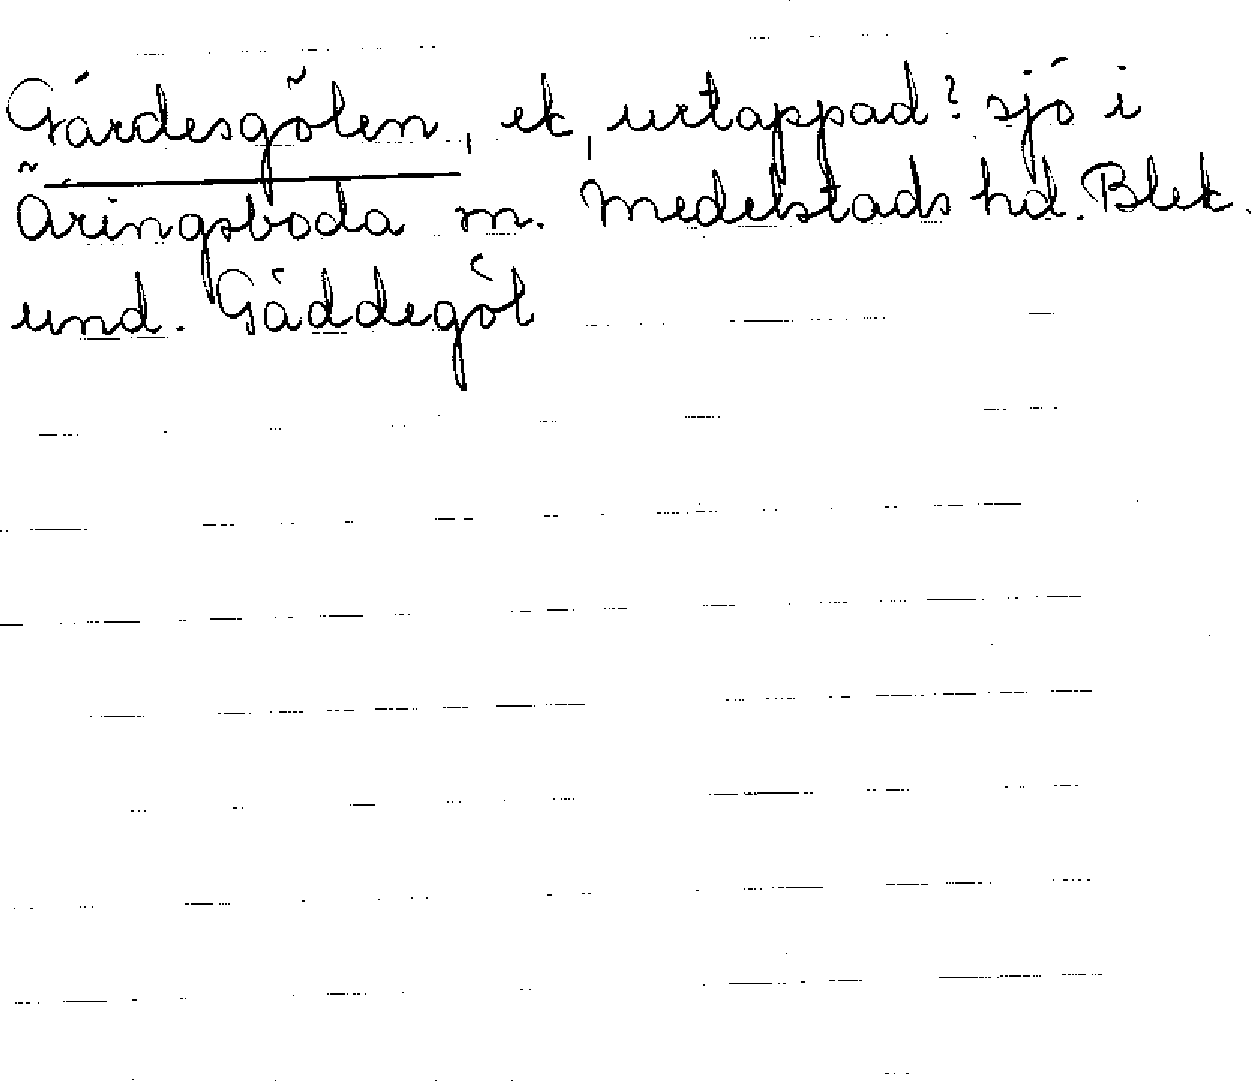 Gärdesgölen, ek, urtappad? sjö i
Äringsboda m. Medelstads hd. Blek.
und. Gäddegöl